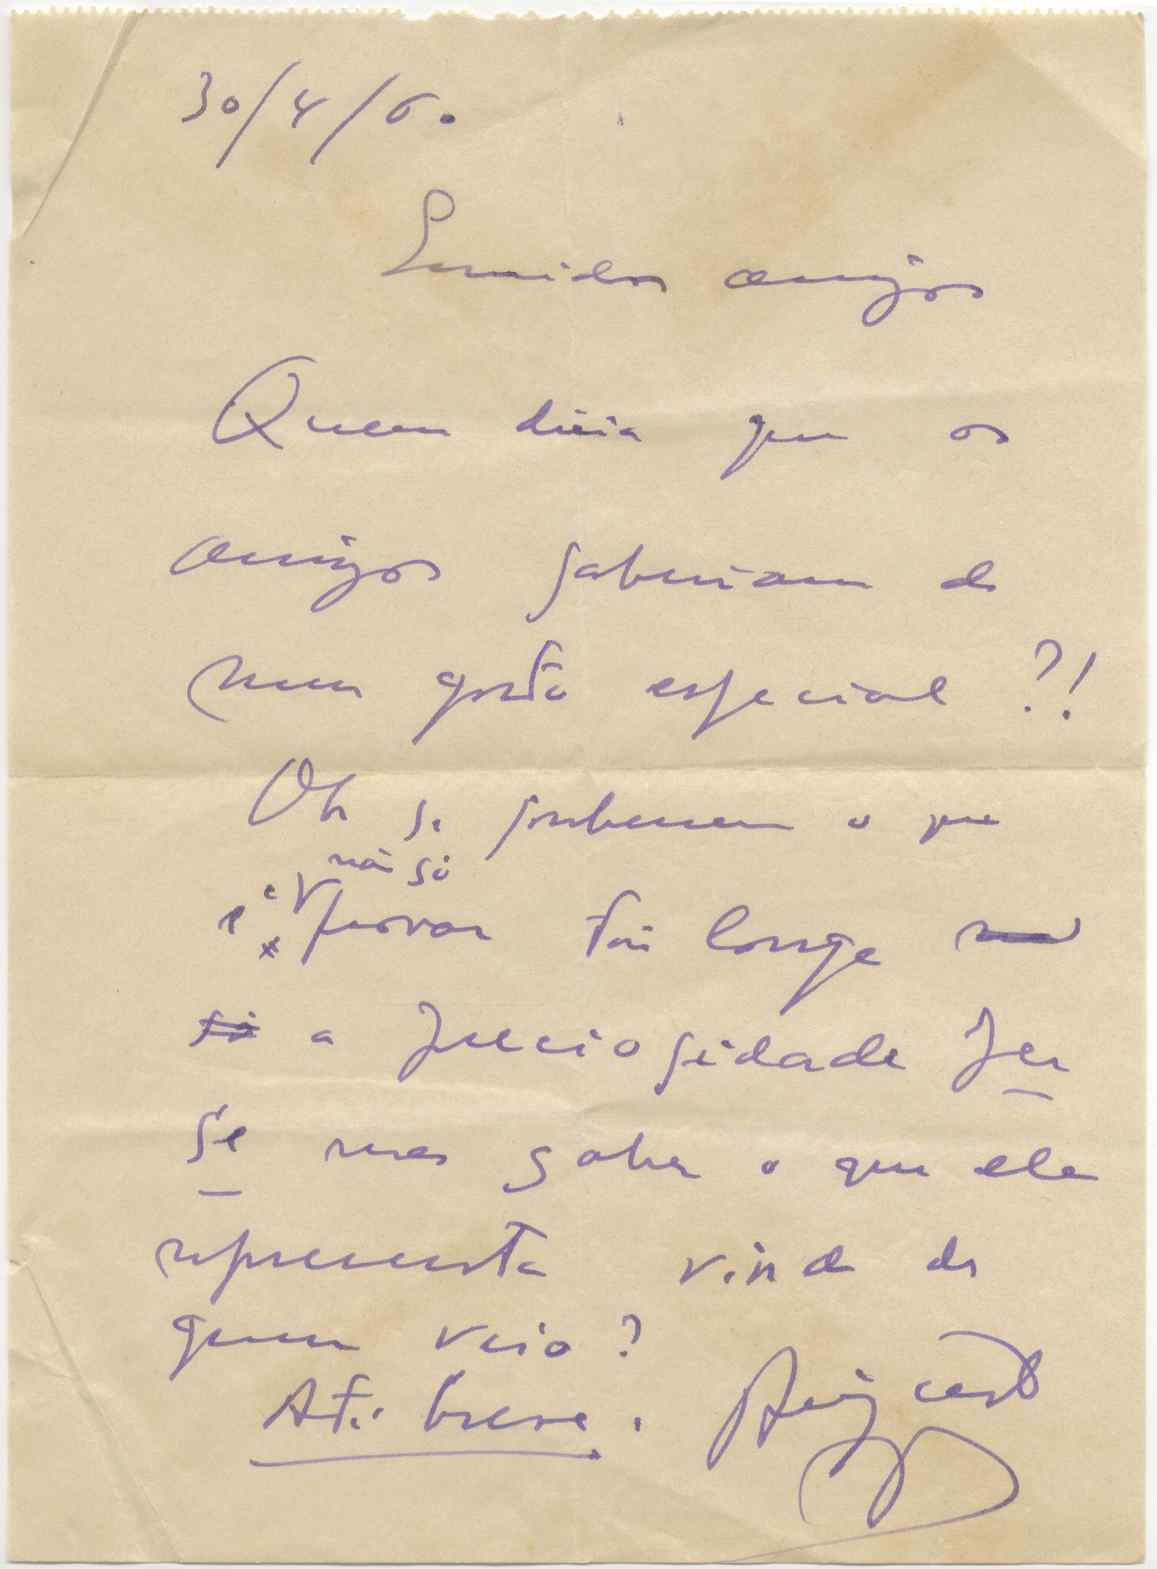 30/4/60
amigos
Quem diria que os
amigos saberiam do
meu gosto especial ?!
Oh se soubessem o que
não só
é provar tão longe
a preciosidade per
se mas saber o que ela
representa vinda de
quem veio?
Até breve.